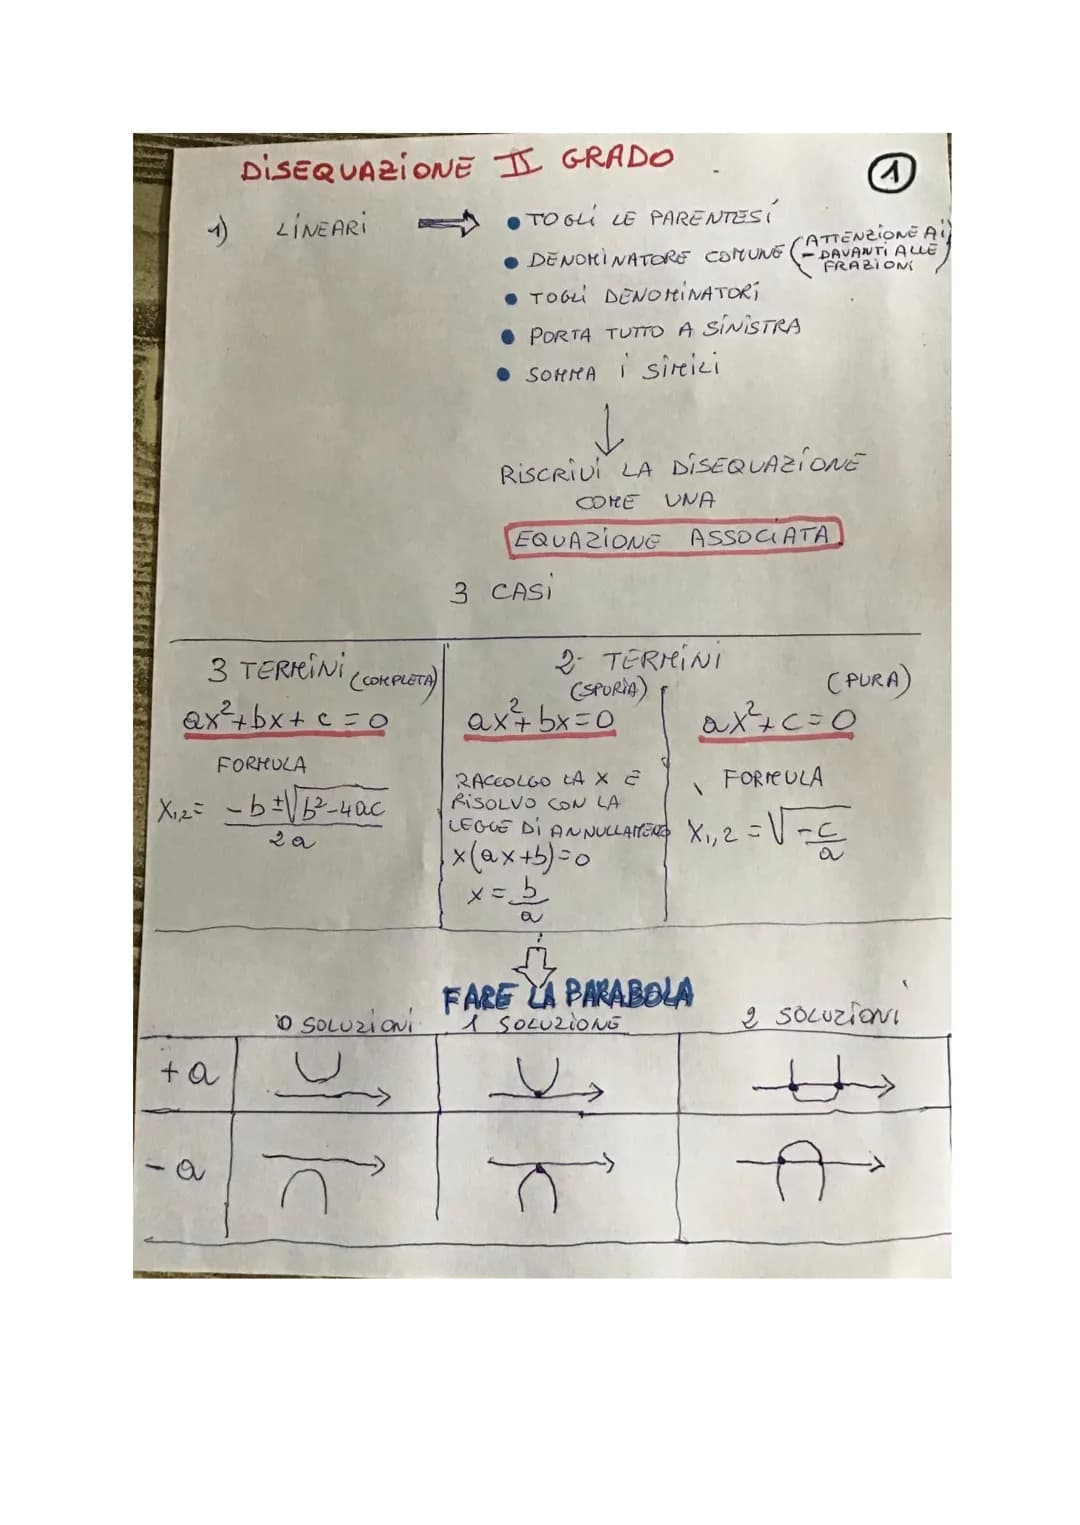 DISEQUAZIONE II GRADO
1
1) LINEARI
• TOGLI LE PARENTESI
• DENOMINATORE COMUNE (ATTENZIONE AI
- DAVANTI ALLE
FRAZIONI)
• TOGLI DENOMINATORI
• PORTA TUTTO A SINISTRA
• SOMMA I SIMILI
RISCRIVI LA DISEQUAZIONE
COME UNA
EQUAZIONE ASSOCIATA
3 CASI
3 TERMINI (COMPLETA)
ax²+bx+c=0
FORMULA
X₁,₂= -b±√b²-4ac
2a
2 TERMINI
(SPURIA)
ax²+bx=0
RACCOLGO LA X E
RISOLVO CON LA
LEGGE DI ANNULLAMENTO
x(ax+b)=0
x=b
a
(PURA)
ax²+c=0
FORMULA
X₁,₂=√-c
a
FARE LA PARABOLA
0 SOLUZIONI
1 SOLUZIONE
2 SOLUZIONI
+a
-a